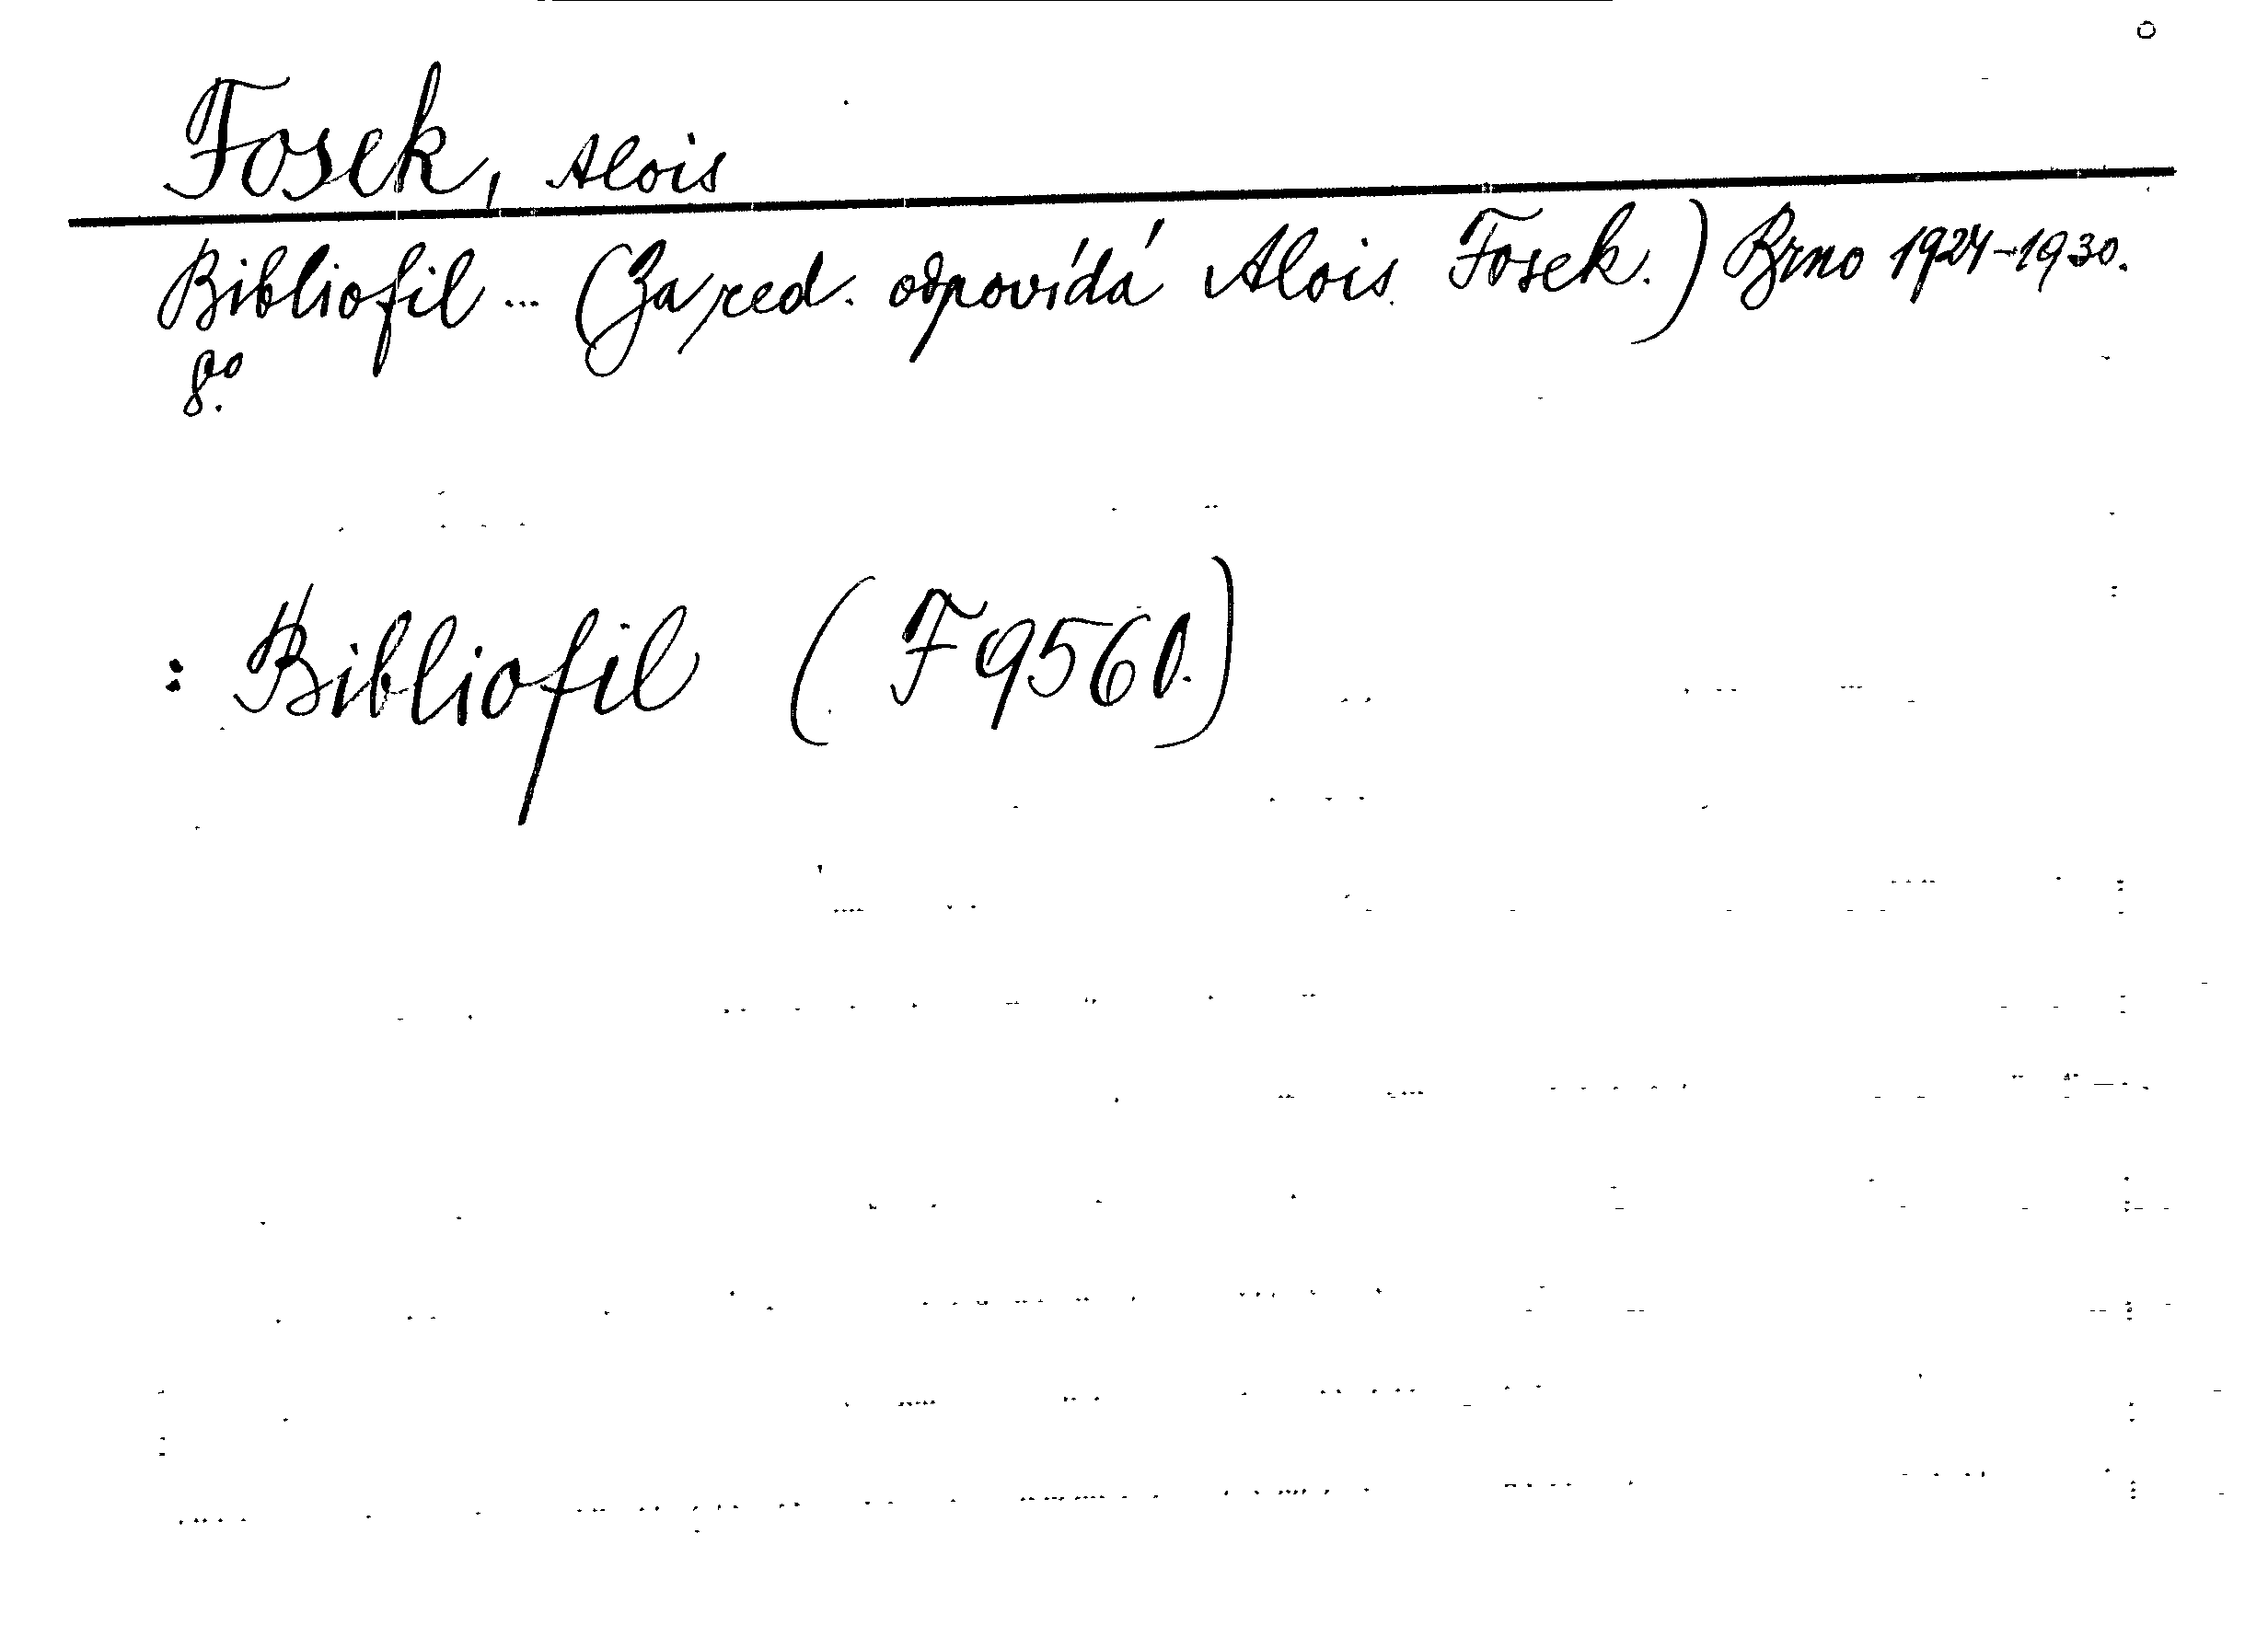 Fosek, Alois
Bibliofil ... (Za red. odpovídá Alois Fosek.) Brno 1924-1930.
8.º
: Bibliofil (F 9560.)